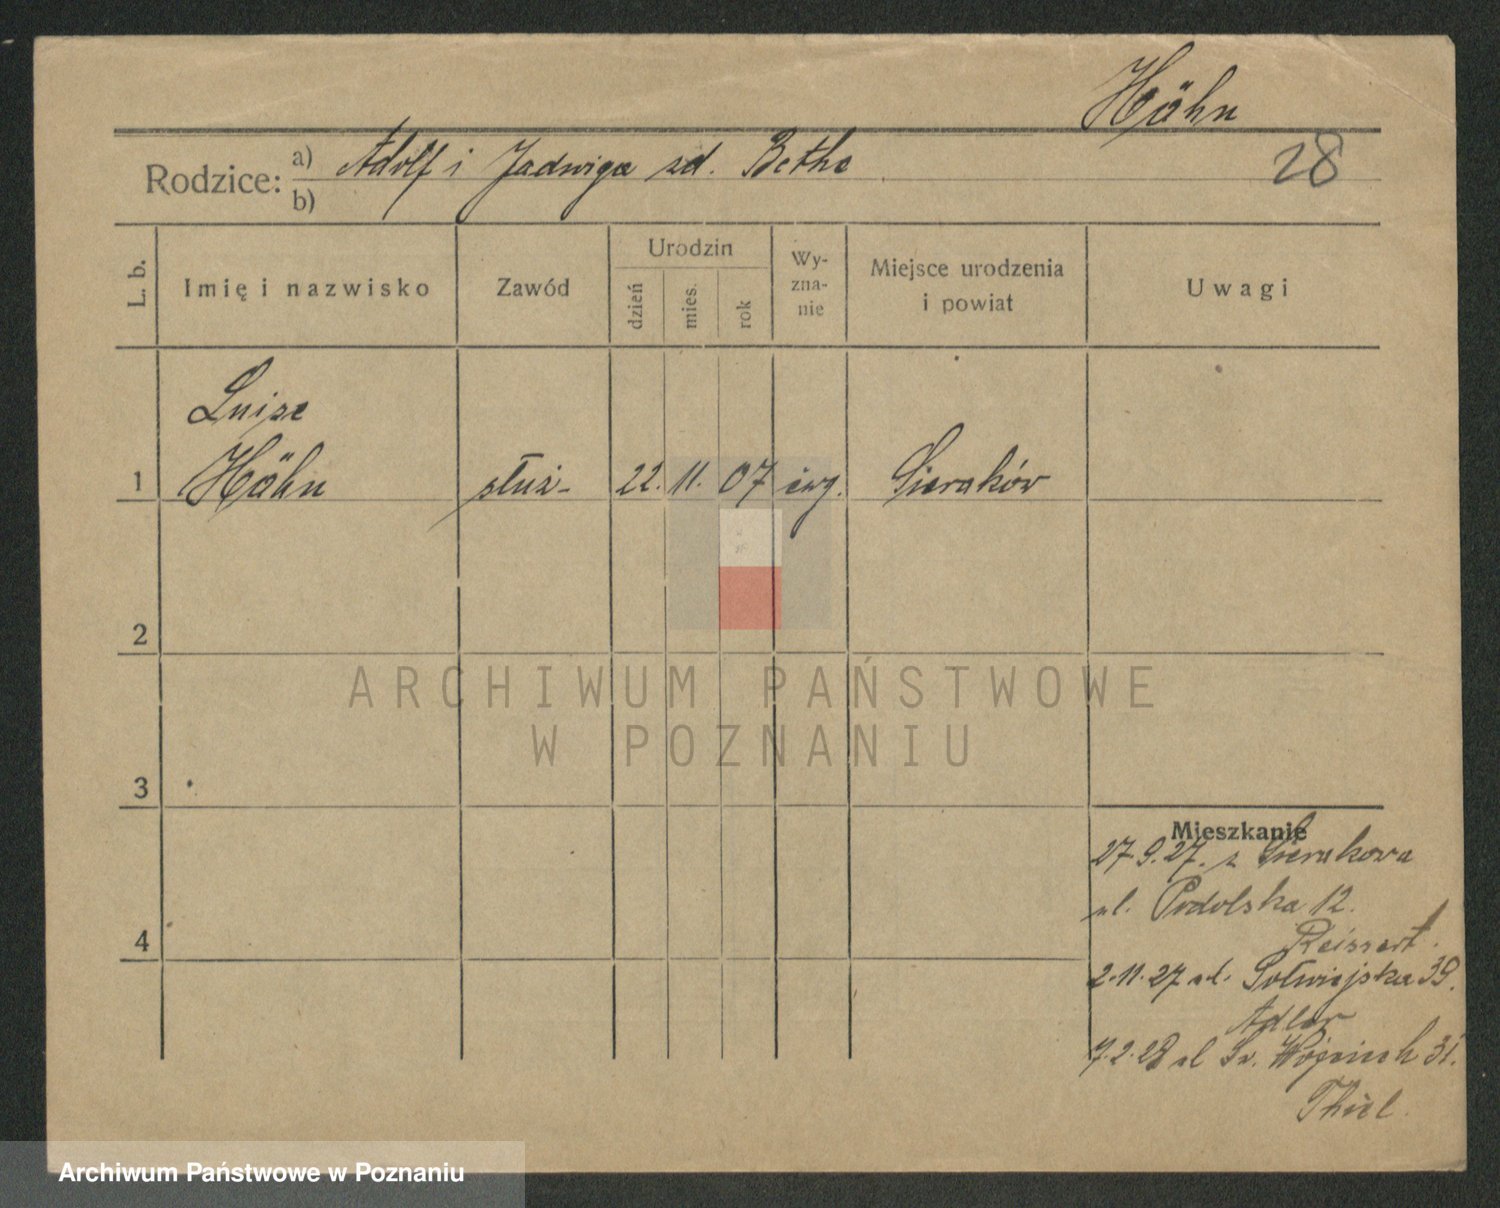 Höhn
28
Rodzice: a) Adolf i Jadwiga zd. Bethe
b)
L. b. Imię i nazwisko Zawód Urodzin dzień mies. rok Wy-zna-nie Miejsce urodzenia i powiat Uwagi
Luise
1 Höhn służ- 22. 11. 07 ewg. Sieraków
2
ARCHIWUM PAŃSTWOWE
W POZNANIU
3
Mieszkanie
27.9.27. z Sierakowa
ul. Podolska 12.
4 Reissert.
2.11.27 ul. Półwiejska 39.
Adler
7.2.28 ul Św. Wojciech 31.
Thiel.
Archiwum Państwowe w Poznaniu